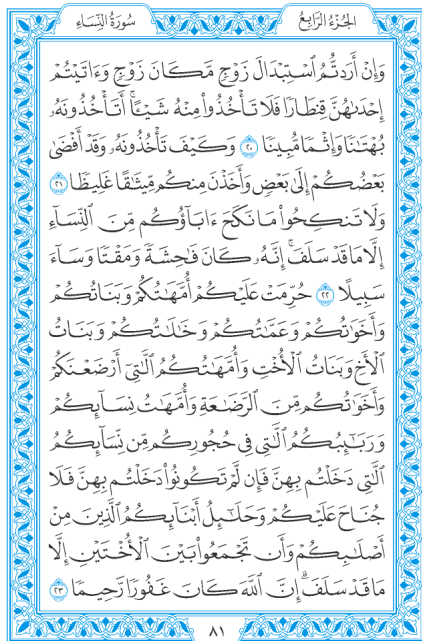 سُورَةُ النِّسَاءِ
الجُزْءُ الرَّابِعُ
وَإِنْ أَرَدتُّمُ ٱسْتِبْدَالَ زَوْجٍ مَّكَانَ زَوْجٍ وَءَاتَيْتُمْ
إِحْدَىٰهُنَّ قِنطَارًا فَلَا تَأْخُذُوا۟ مِنْهُ شَيْـًٔا ۚ أَتَأْخُذُونَهُۥ
بُهْتَـٰنًا وَإِثْمًا مُّبِينًا ٢٠ وَكَيْفَ تَأْخُذُونَهُۥ وَقَدْ أَفْضَىٰ
بَعْضُكُمْ إِلَىٰ بَعْضٍ وَأَخَذْنَ مِنكُم مِّيثَـٰقًا غَلِيظًا ٢١
وَلَا تَنكِحُوا۟ مَا نَكَحَ ءَابَآؤُكُم مِّنَ ٱلنِّسَآءِ
إِلَّا مَا قَدْ سَلَفَ ۚ إِنَّهُۥ كَانَ فَـٰحِشَةً وَمَقْتًا وَسَآءَ
سَبِيلًا ٢٢ حُرِّمَتْ عَلَيْكُمْ أُمَّهَـٰتُكُمْ وَبَنَاتُكُمْ
وَأَخَوَٰتُكُمْ وَعَمَّـٰتُكُمْ وَخَـٰلَـٰتُكُمْ وَبَنَاتُ
ٱلْأَخِ وَبَنَاتُ ٱلْأُخْتِ وَأُمَّهَـٰتُكُمُ ٱلَّـٰتِىٓ أَرْضَعْنَكُمْ
وَأَخَوَٰتُكُم مِّنَ ٱلرَّضَـٰعَةِ وَأُمَّهَـٰتُ نِسَآئِكُمْ
وَرَبَـٰٓئِبُكُمُ ٱلَّـٰتِى فِى حُجُورِكُم مِّن نِّسَآئِكُمُ
ٱلَّـٰتِى دَخَلْتُم بِهِنَّ فَإِن لَّمْ تَكُونُوا۟ دَخَلْتُم بِهِنَّ فَلَا
جُنَاحَ عَلَيْكُمْ وَحَلَـٰٓئِلُ أَبْنَآئِكُمُ ٱلَّذِينَ مِنْ
أَصْلَـٰبِكُمْ وَأَن تَجْمَعُوا۟ بَيْنَ ٱلْأُخْتَيْنِ إِلَّا
مَا قَدْ سَلَفَ ۗ إِنَّ ٱللَّهَ كَانَ غَفُورًا رَّحِيمًا ٢٣
٨١